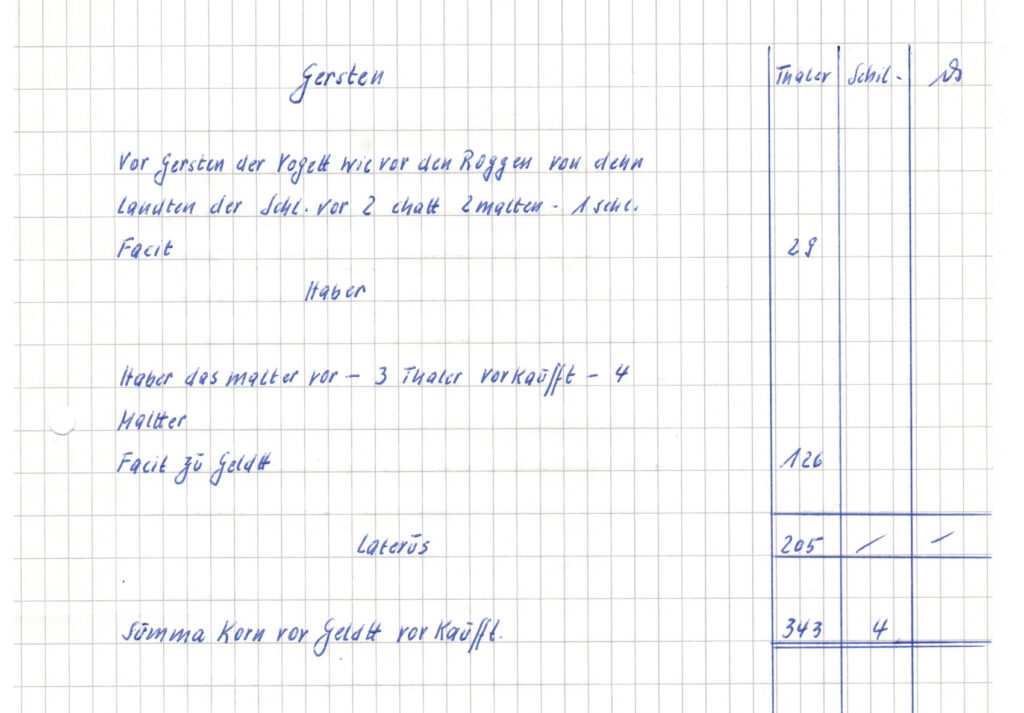 Gersten
Thaler Schil-
Vor Gersten der Vogett wie vor den Roggen von dehn
Landten der Schl. vor 2 thatt 2 malten - 1 schl.
Facit 29
Haber
Haber das malter vor - 3 Thaler vorkaufft - 4
Maltter
Facit zu Geldtt 126
Laterus 205 - -
Summa Korn vor Geldtt vor Kaufft. 343 4